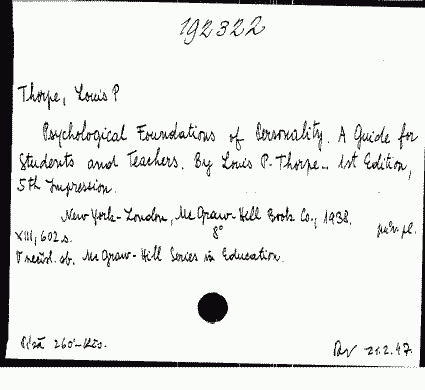 192322
Thorpe, Louis P
Psychological Foundations of Personality. A Guide for
Students and Teachers. By Louis P. Thorpe... 1st Edition,
5th Impression.
New York-London, Mc Graw-Hill Book Co., 1938.
XIII, 602 s. 8°
V neúpl. ob. Mc Graw-Hill Series in Education.
260'- Kčs. 21.2.47.